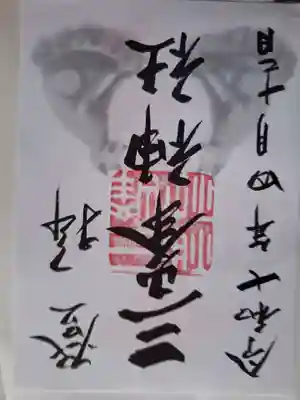 登拝
三峯神社
令和七年四月十日